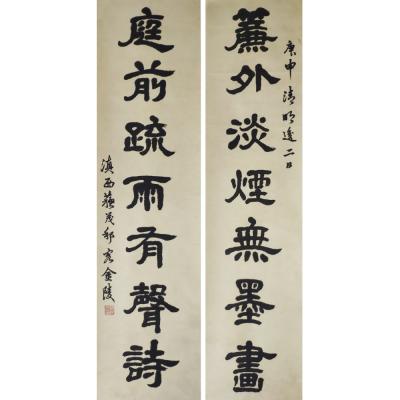 簾外淡煙無墨畫
庚申清明後二日
庭前疏雨有聲詩
滇西蘇茂郁客金陵